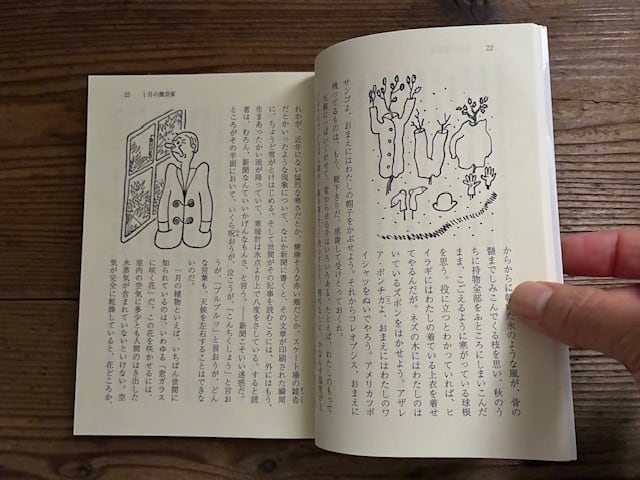 22
からからに乾いた氷のような風が、骨の
髄までしみこんでくる枝を思い、秋のう
ちに持物全部をふところにしまいこんだ
まま、こごえるように寒がっている球根
を思う。役に立つとわかっていれば、ヒ
イラギにはわたしの着ている上衣を着せ
てやるんだが。ネズの木にはわたしのは
いているズボンをはかせよう。アザレ
ア・ポンチカよ、おまえにはわたしのワ
イシャツをぬいでやろう。アメリカツボ
サンゴよ、おまえにはわたしの帽子をかぶせよう。それからコレオプシス、おまえに
残ってるものは、もう、靴下きりだ。感謝して受けとっておくれ。
天候にいっぱいくわせて、変わらせる手はいろいろある。たとえば、わたしのもって
23 1月の園芸家
れかが、近年にない猛烈な寒さだとか、健康そうな赤い頬だとか、スケート場の雑沓
だとかいったような現象について、なにか新聞に書くと、その文章が印刷された瞬間
に、ちょうど雪がとけはじめる。そして世間がその記事を読むころには、外にはもう、
生まあったかい雨が降っていて、寒暖計は氷点より上で八度をさしている。すると読
者は、むろん、新聞なんていいかげんなもんさ、と言う。――新聞こそいい迷惑だ。
ところがその半面において、いくら呪おうが、泣こうが、「こんちくしょう」と言お
うが、「ブルブルッ」と言おうが、どん
な言葉も、天候を左右することはできな
いのだ。
一月の植物といえば、いちばん世間に
知られているのは、いわゆる「窓ガラス
に咲く花」だ。この花を咲かせるには、
室内の空気に多少とも人間のはき出した
水蒸気が含まれていないといけない。空
気が完全に乾燥していると、花どころか、